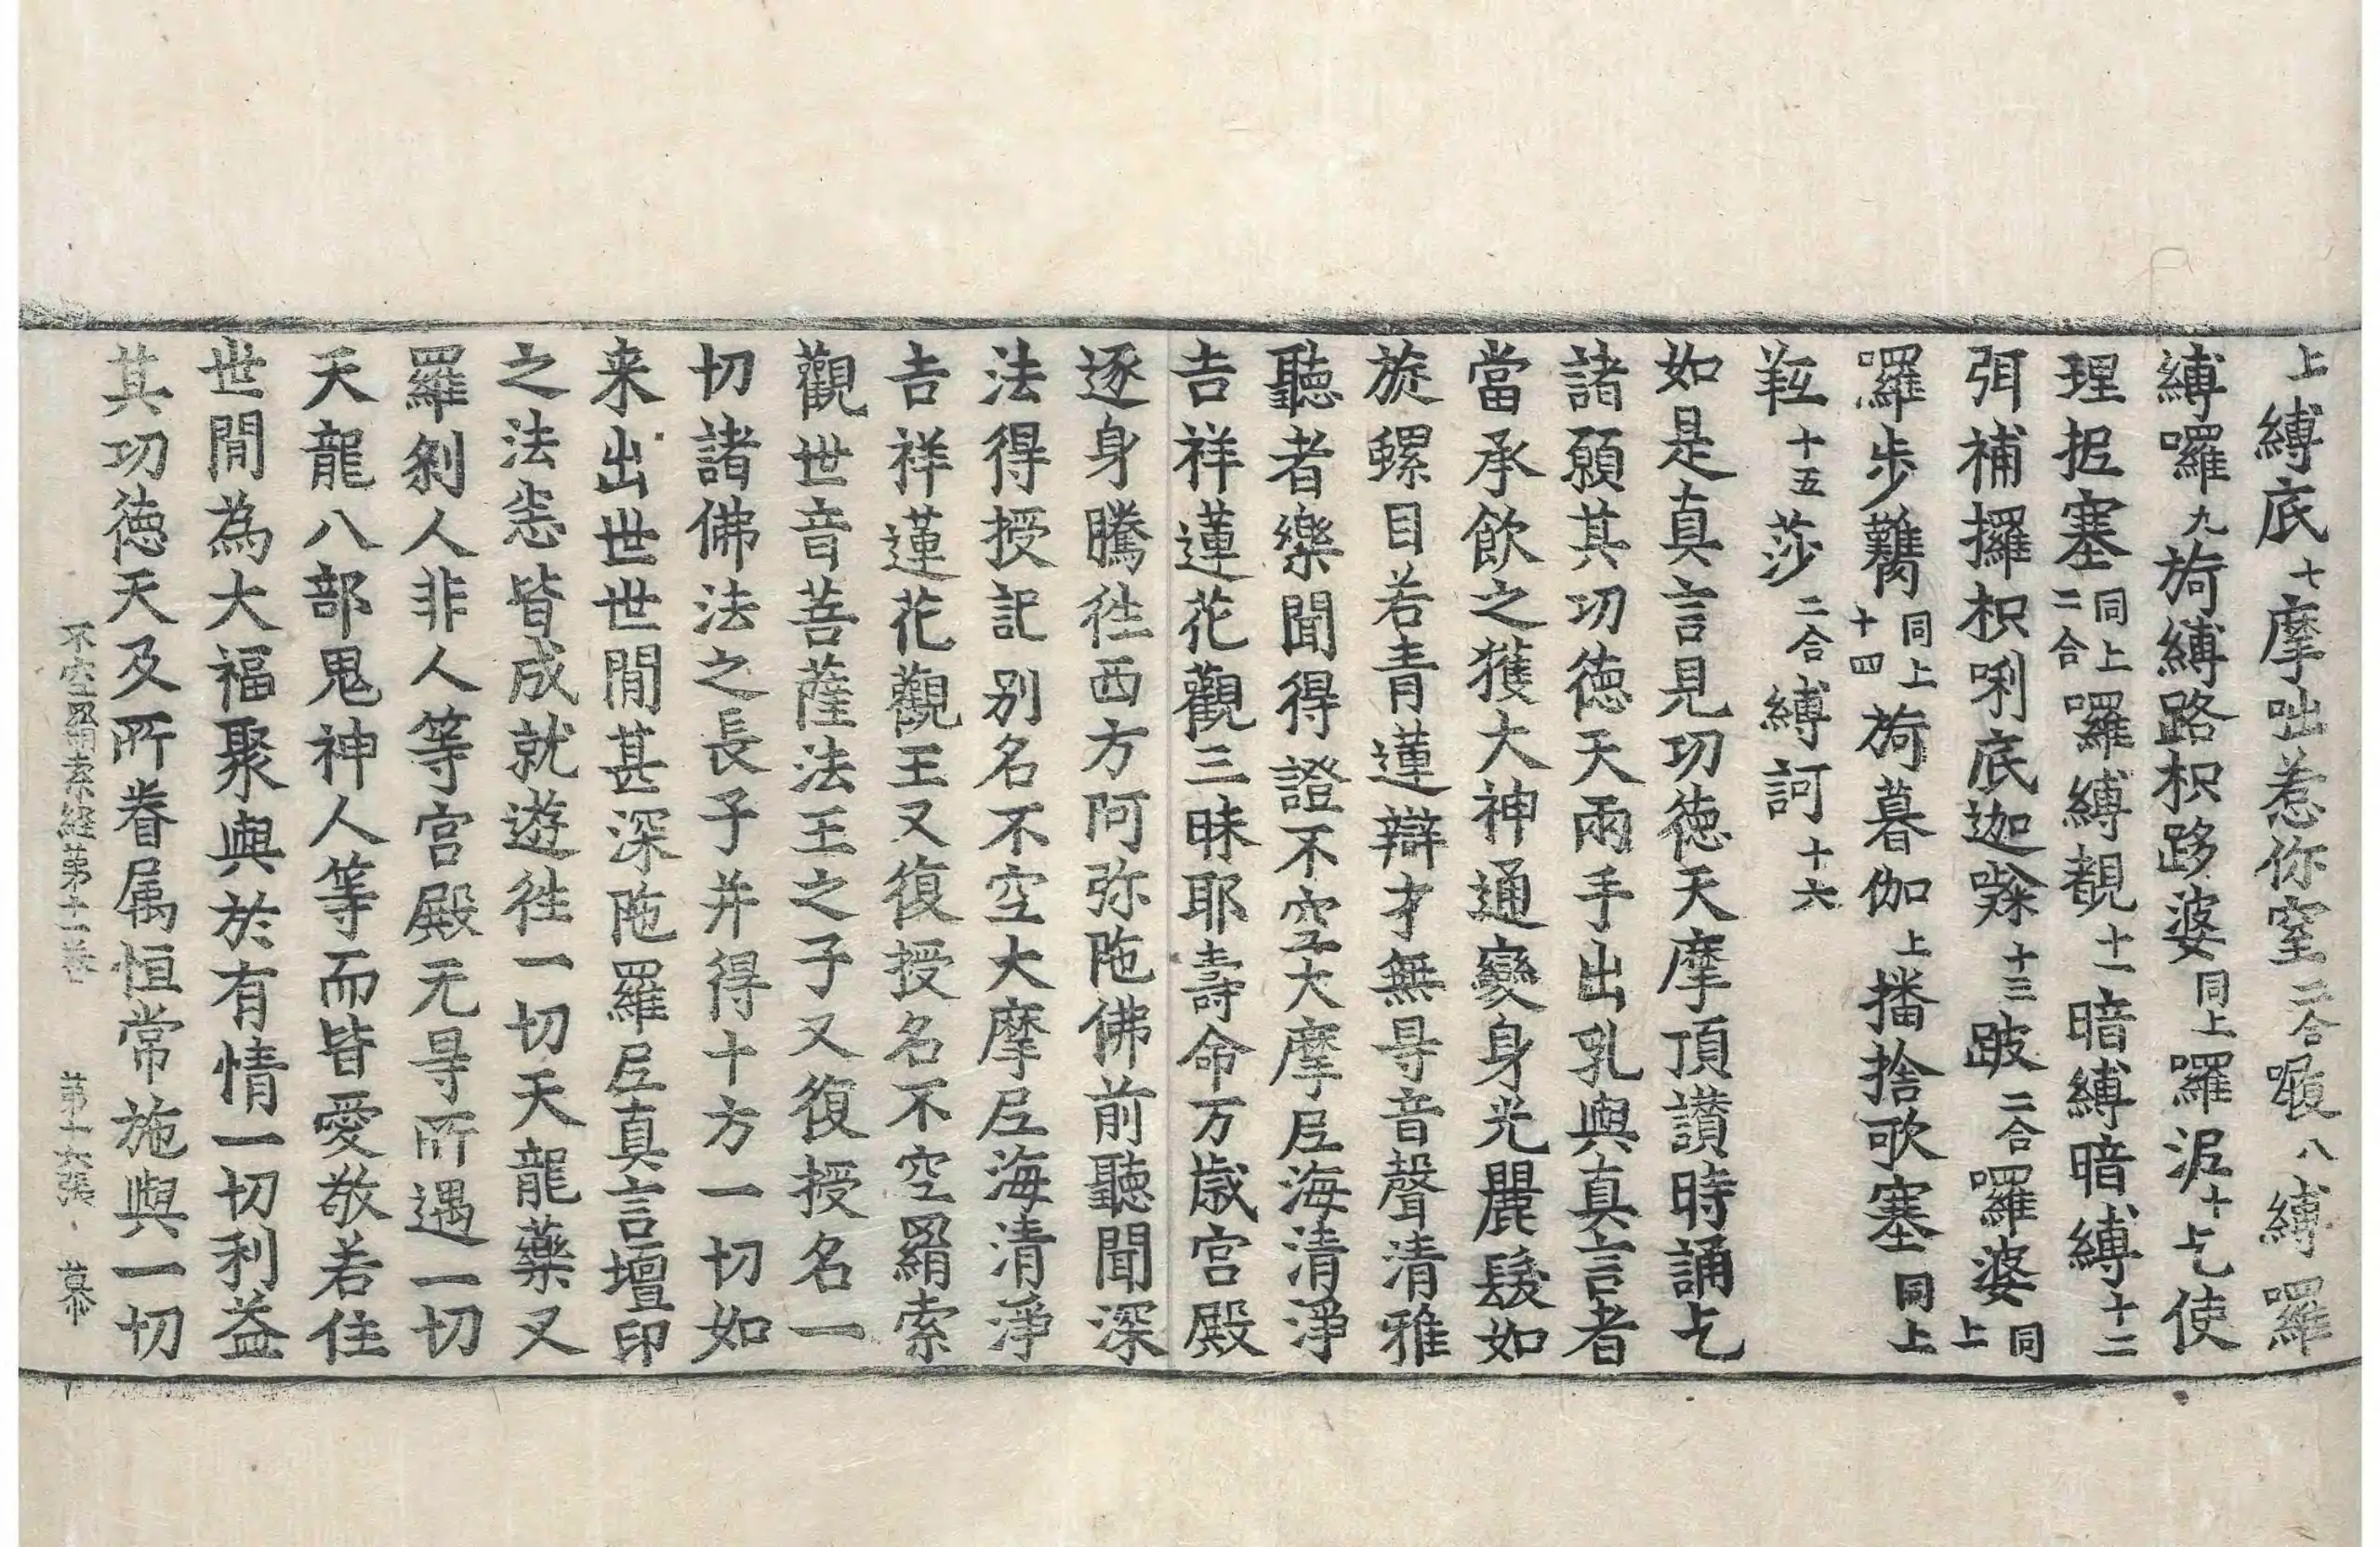 上縛底七摩咄惹你窒二合噘八縛囉
縛囉九旖縛路枳路婆同上囉泥十乞使
理抳塞同上二合囉縛覩十一暗縛暗縛十二
弭補攞枳唎底迦㗚十三跛二合囉婆同上
囉步鸈同上十四旖暮伽上播捨歌塞同上
䩭十五莎二合縛訶十六
如是真言見功徳天摩頂讃時誦乞
諸願其功徳天兩手出乳與真言者
當承飲之獲大神通變身光麗髮如
旋螺目若青蓮辯才無㝵音聲清雅
聽者樂聞得證不空大摩𡰱海清淨
吉祥蓮花觀三昧耶壽命万歳宮殿
逐身騰徃西方阿弥陁佛前聽聞深
法得授記别名不空大摩𡰱海清淨
吉祥蓮花觀王又復授名不空羂索
觀世音菩薩法王之子又復授名一
切諸佛法之長子并得十方一切如
来出世世間甚深陁羅𡰱真言壇印
之法悉皆成就遊徃一切天龍藥叉
羅刹人非人等宮殿无㝵所遇一切
天龍八部鬼神人等而皆愛敬若住
世間為大福聚與於有情一切利益
其功徳天及所眷属恒常施與一切
不空羂索経第十一巻　第十六張　幕